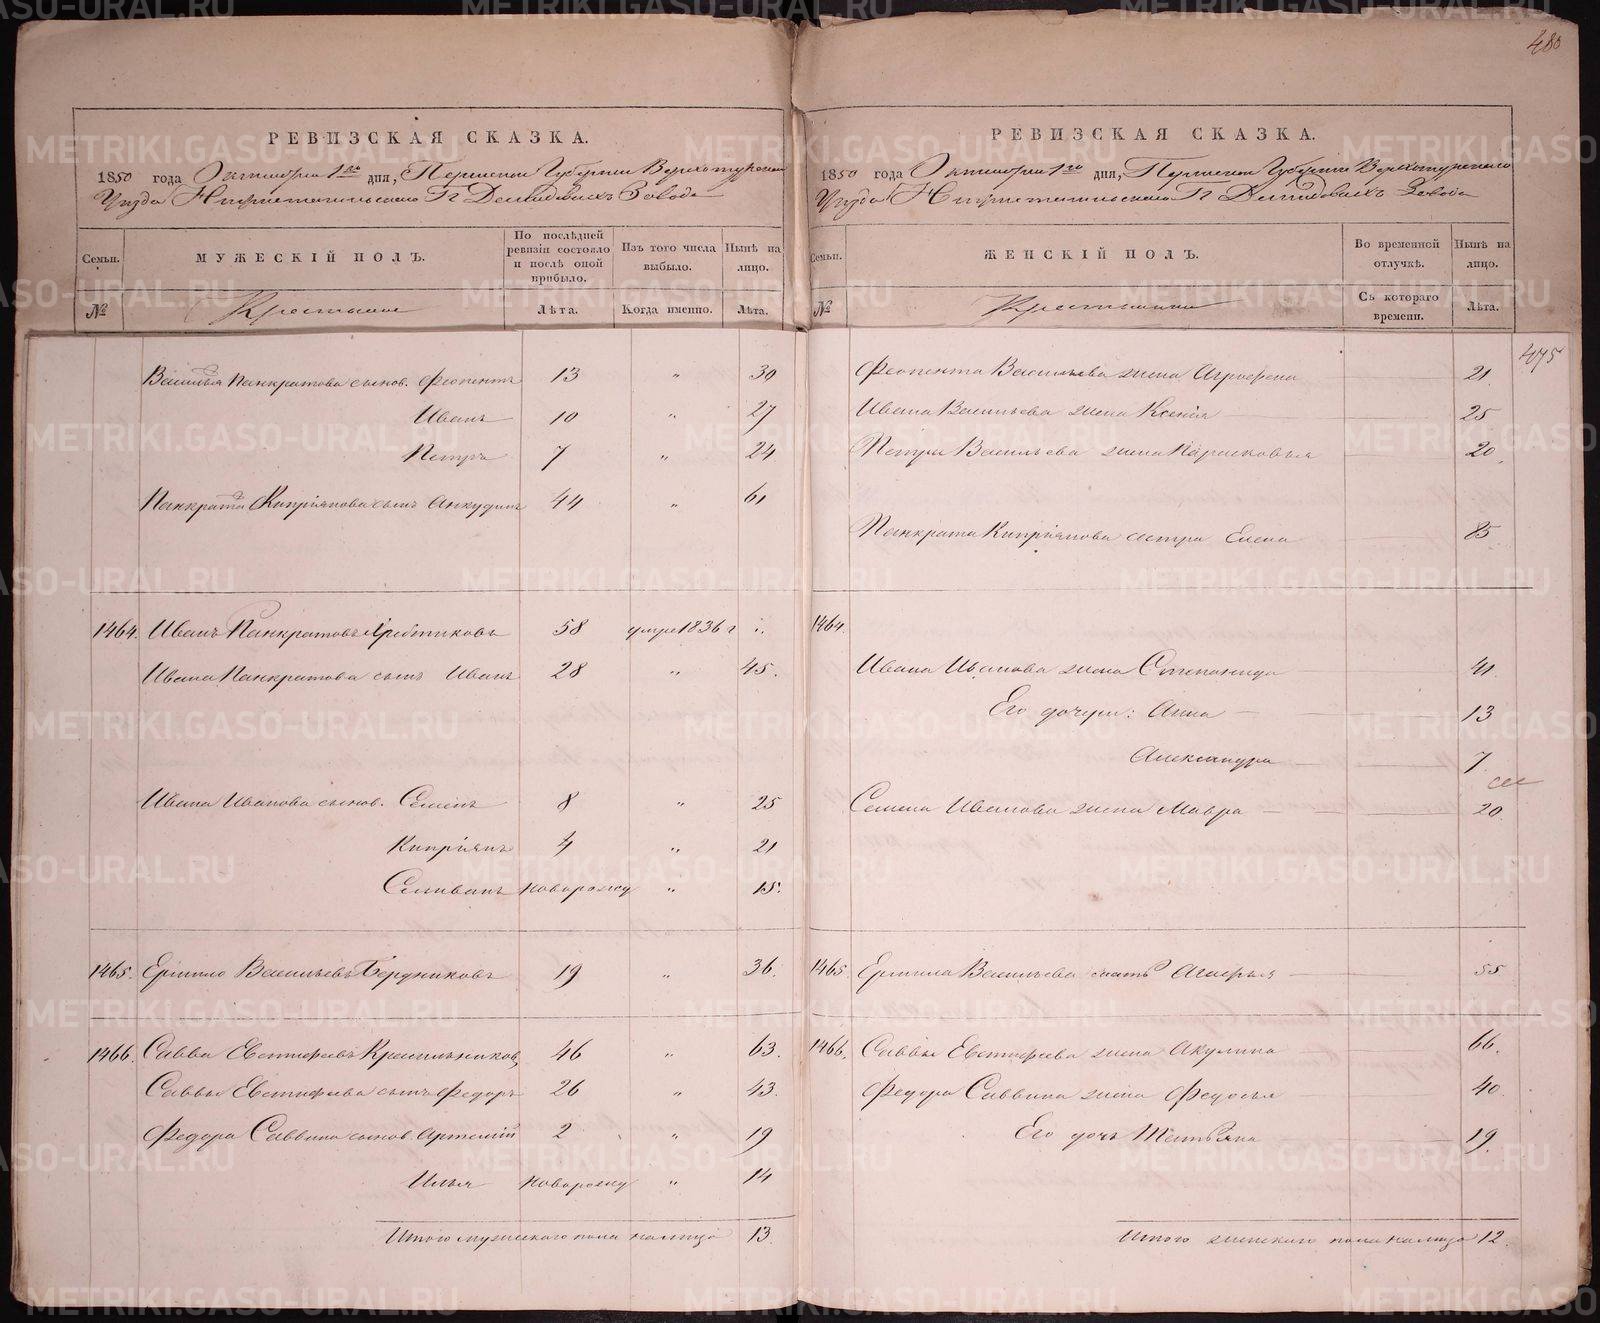 480
РЕВИЗСКАЯ СКАЗКА.
1850 года Октября 1го дня, Пермской Губернии Верхотурскаго
Уезда Нижнетагильскаго Гг Демидовыхъ Завода
Семьи. МУЖЕСКІЙ ПОЛЪ. По послѣдней ревизіи состояло и послѣ оной прибыло. Изъ того числа выбыло. Нынѣ на лицо.
№ Крестьяне Лѣта. Когда именно. Лѣта.
Василья Панкратова сынов. Феопентъ 13 " 30
Иванъ 10 " 27
Петръ 7 " 24
Панкрата Кипріянова сынъ Анкудинъ 44 " 61
1464. Иванъ Панкратовъ 58 умре 1836 г ".
Ивана Панкратова сынъ Иванъ 28 " 45.
Ивана Иванова сынов. Семенъ 8 " 25
Кипріянъ 4 " 21
Селиванъ новорожд " 15.
1465. Ермило Васильевъ Бердниковъ 19 " 36.
1466. Савва Евстифеевъ Красильников 46 " 63.
Саввы Евстифеева сынъ Федоръ 26 " 43.
Федора Саввина сынов. Артемій 2 " 19
Илья новорожд " 14
Итого мужескаго пола налицо 13.
РЕВИЗСКАЯ СКАЗКА.
1850 года Октября 1го дня, Пермской Губернии Верхотурскаго
Уезда Нижнетагильскаго Гг Демидовыхъ Завода
Семьи. ЖЕНСКІЙ ПОЛЪ. Во временной отлучкѣ. Нынѣ на лицо.
№ Крестьянки Съ котораго времени. Лѣта.
475
Феопента Васильева жена Аграфена 21.
Ивана Васильева жена Ксенія 25
Петра Васильева жена Парасковья 20.
Панкрата Кипріянова сестра Елена 85
1464.
Ивана Иванова жена Степанида 41
Его дочери: Анна 13
Александра 7.
Семена Иванова жена Мавра 20.
1465. Ермила Васильева мать Агафья 55
1466. Саввы Евстифеева жена Акулина 66.
Федора Саввина жена Федосья 40.
Его дочь Татьяна 19.
Итого женскаго пола налицо 12.
METRIKI.GASO-URAL.RU